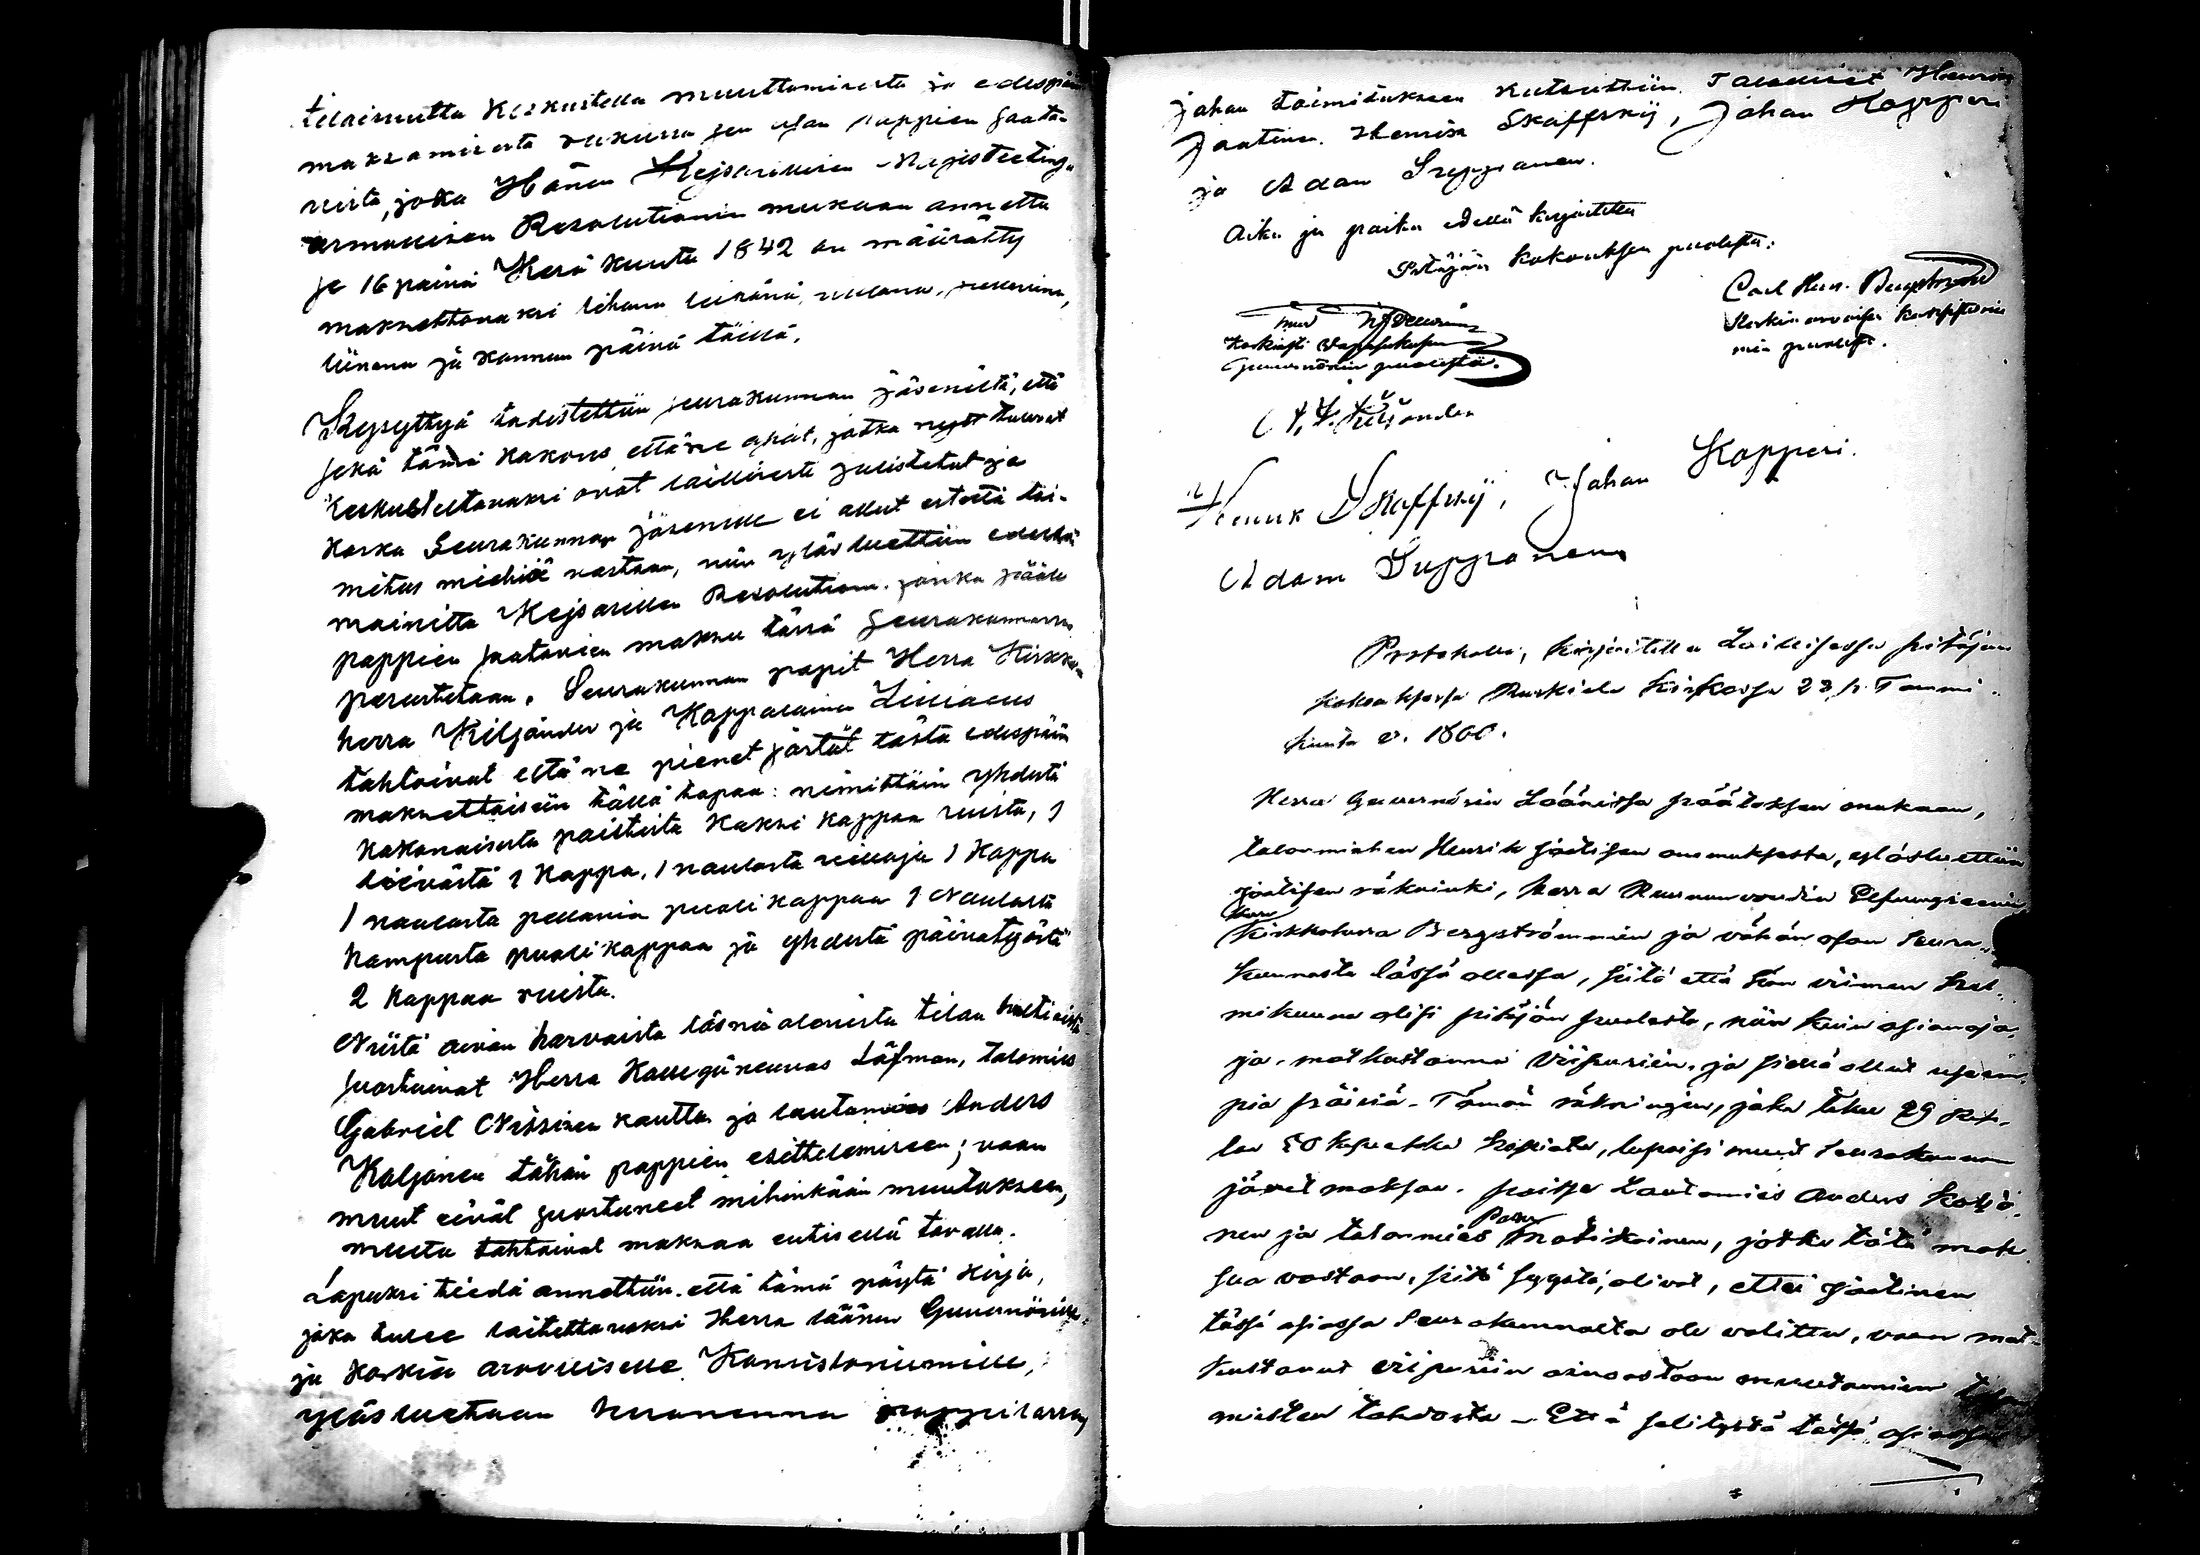 tilaisuutta keskustella muuttamisesta ja edespäin
maksamisesta rukiissa sen osan pappien saata-
vista, joka Hänen Kejsarillisen Majesteetinsa
armollisen Resolutionin mukaan annettu
je 16 päivä Kesä kuuta 1842 on määrätty
maksettavaksi lihana leiränä, villana, pellavina,
liinana ja kannun päivä töillä.
Kysyttyä todistettiin seurakunnan jäseniltä, että
sekä tämä kokous että ne asiat, jotka nyt tulevat
keskusteltavaksi ovat laillisesti julistetut ja
koska Seurakunnan jäsenille ei ollut estettä toi-
mitus miehiä vastaan, niin ylös luettiin edellä
mainittu Kejsarillen Resolution, jonka päälle
pappien saatavien maksu tässä Seurakunnassa
perustetaan. Seurakunnan papit Herra Kirkko
herra Kiljander ja Kappalainen Liliaeus
tahtoivat että ne pienet parselit tästä edespäin
maksettaisiin tällä tapaa: nimittäin yhdestä
kokonaisesta paistista kaksi kappaa ruista, 1
löivästä 1 kappa, 1 naulasta villoja 1 kappa
1 naulasta pellavia puoli kappaa 1 Naulasta
hampusta puoli kappaa ja yhdestä päivätyöstä
2 kappaa ruista.
Niistä aivan harvoista läsnä olevista tilan haltioista
suostuivat Herra Kollegineuvos Löfman, talomies
Gabriel Nissisen kautta ja lautamies Anders
Koljonen tähän pappien esittelemiseen; vaan
muut eivät suostuneet mihinkään muutokseen,
mutta tahtoivat maksaa entisellä tavalla.
Lopuksi tiedä annettiin, että tämä pöytä kirja,
joka tulee laitettavaksi Herra läänin Guvernörille
ja korkia arvolliselle Konsistoriumille,
ylösluetaan huomenna pappilassa,
johan toimitukseen kutsuttiin Talolliset Henrik
Jaatinen, Henrik Skaffskij, Johan Kopperi
ja Adam Seppänen.
Aika ja paikka edellä kirjoitettu
Pitäjän kokouksen puolesta:
Carl Hen. Bergström
Korkia arvoisen konsistoriu
min puolesta.
Guvernörin puolesta.
Henrik Skaffskij, Johan Kopperi.
Adam Seppänen
Protokolla, kirjoitettu Laillisessa pitäjän
kokouksessa Ruskiala kirkossa 23 p. Tammi-
kuuta v. 1860.
Herra Guvernörin Läänissä päätöksen mukaan,
talonmiehen Henrik Jaatisen anomuksesta, ylösluettiin
Jaatisen räkninki, herra Kruununvoudin Elfvengrenin
herra
kirkkoherra Bergströmmin ja vähän osan Seura-
kunnasta läsnä ollessa, siitä että hän viimen hel-
mikuussa olisi pitäjän puolesta, niin kuin asianaja-
ja, matkustanna Viipuriin, ja siellä ollut useim-
pia päiviä. Tämän räkningin, joka tekee 29 rup-
laa 50 kopekka hopiata, lupaisi muut Seurakunnan
jäsenet maksaa, paitse Lautamies Anders Koljo-
Pekka
nen ja talonmies Matikainen, jotka tätä mak
sua vastaan, siitä syystä, olivat, ettei Jaatinen
tässä asiassa Seurakunnalta ole valittu, vaan mat-
kustanut Viipuriin ainoastaan muutamien talon
miesten tahdosta – Että selitystä tässä asiassa